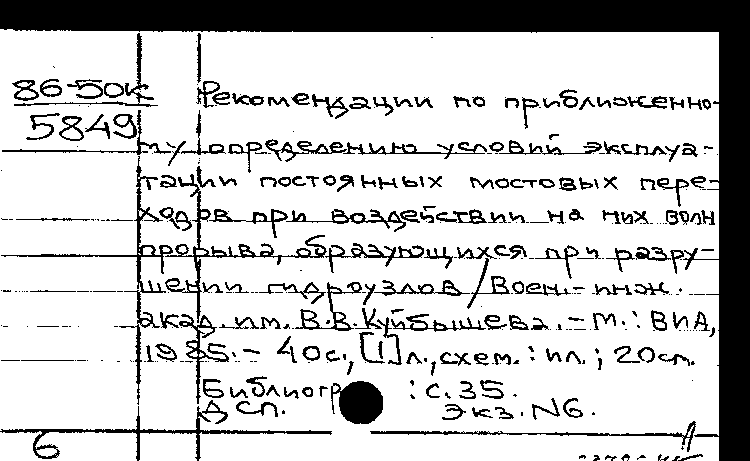 86-50к Рекомендации по приближенно-
5849
му определению условий эксплуа-
тации постоянных мостовых пере-
ходов при воздействии на них волн
прорыва, образующихся при разру-
шении гидроузлов / Воен.-инж.
акад. им. В.В. Куйбышева. - М.: ВИА,
1985. - 40с., [1]л., схем. : ил.; 20см.
Библиогр : с. 35.
ДСП. Экз. N6.
6